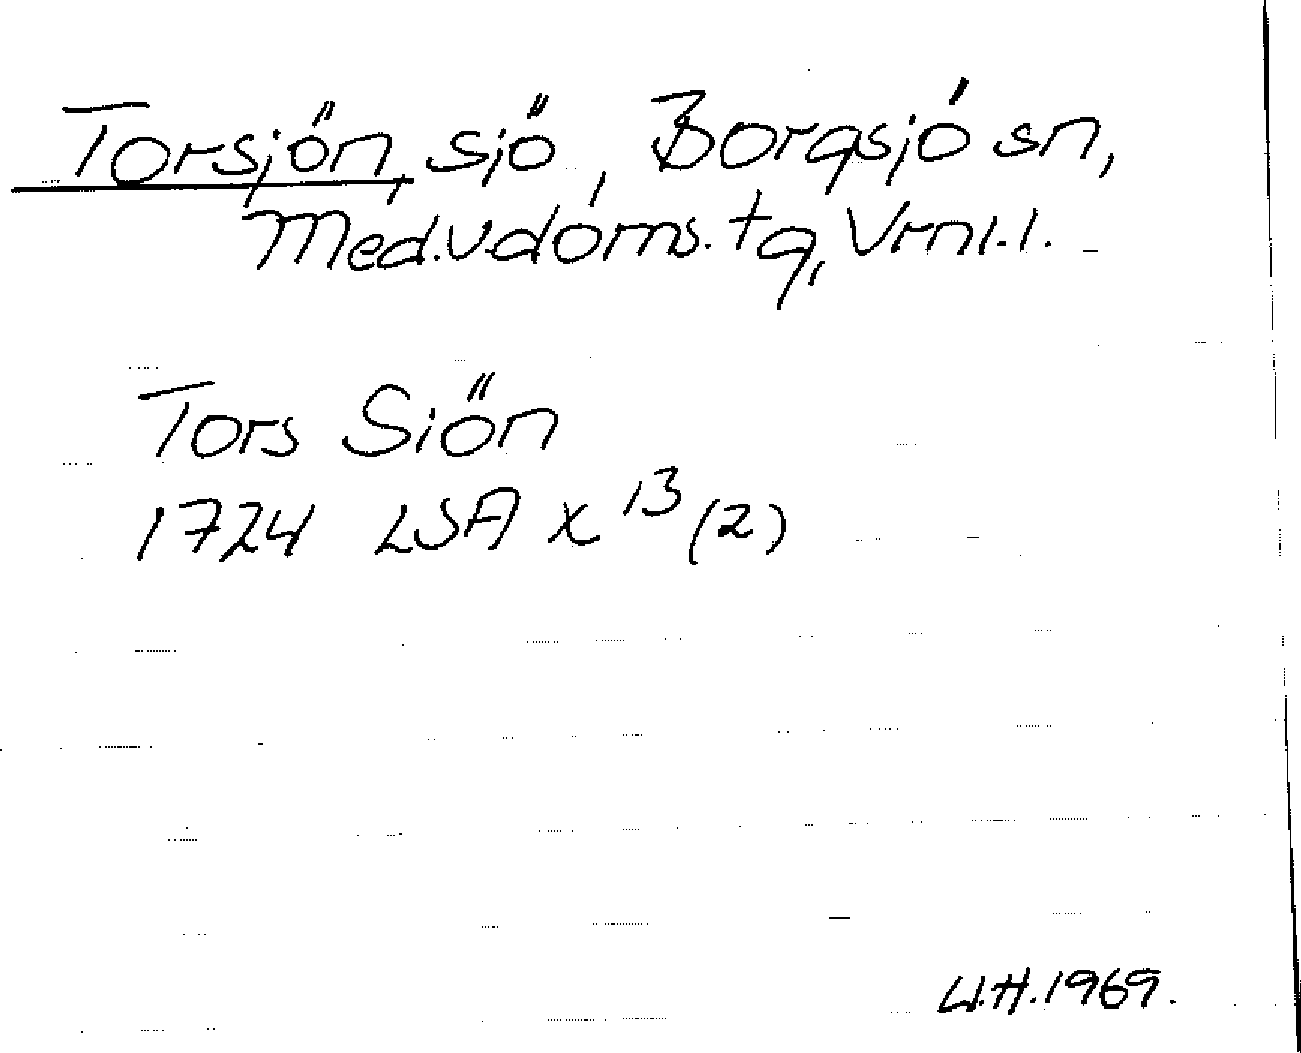 Torsjön, sjö, Borgsjö sn,
Med.v.doms. tg, Vrnl.l.
Tors Siön
1724 LSA x 13 (2)
U.H. 1969.